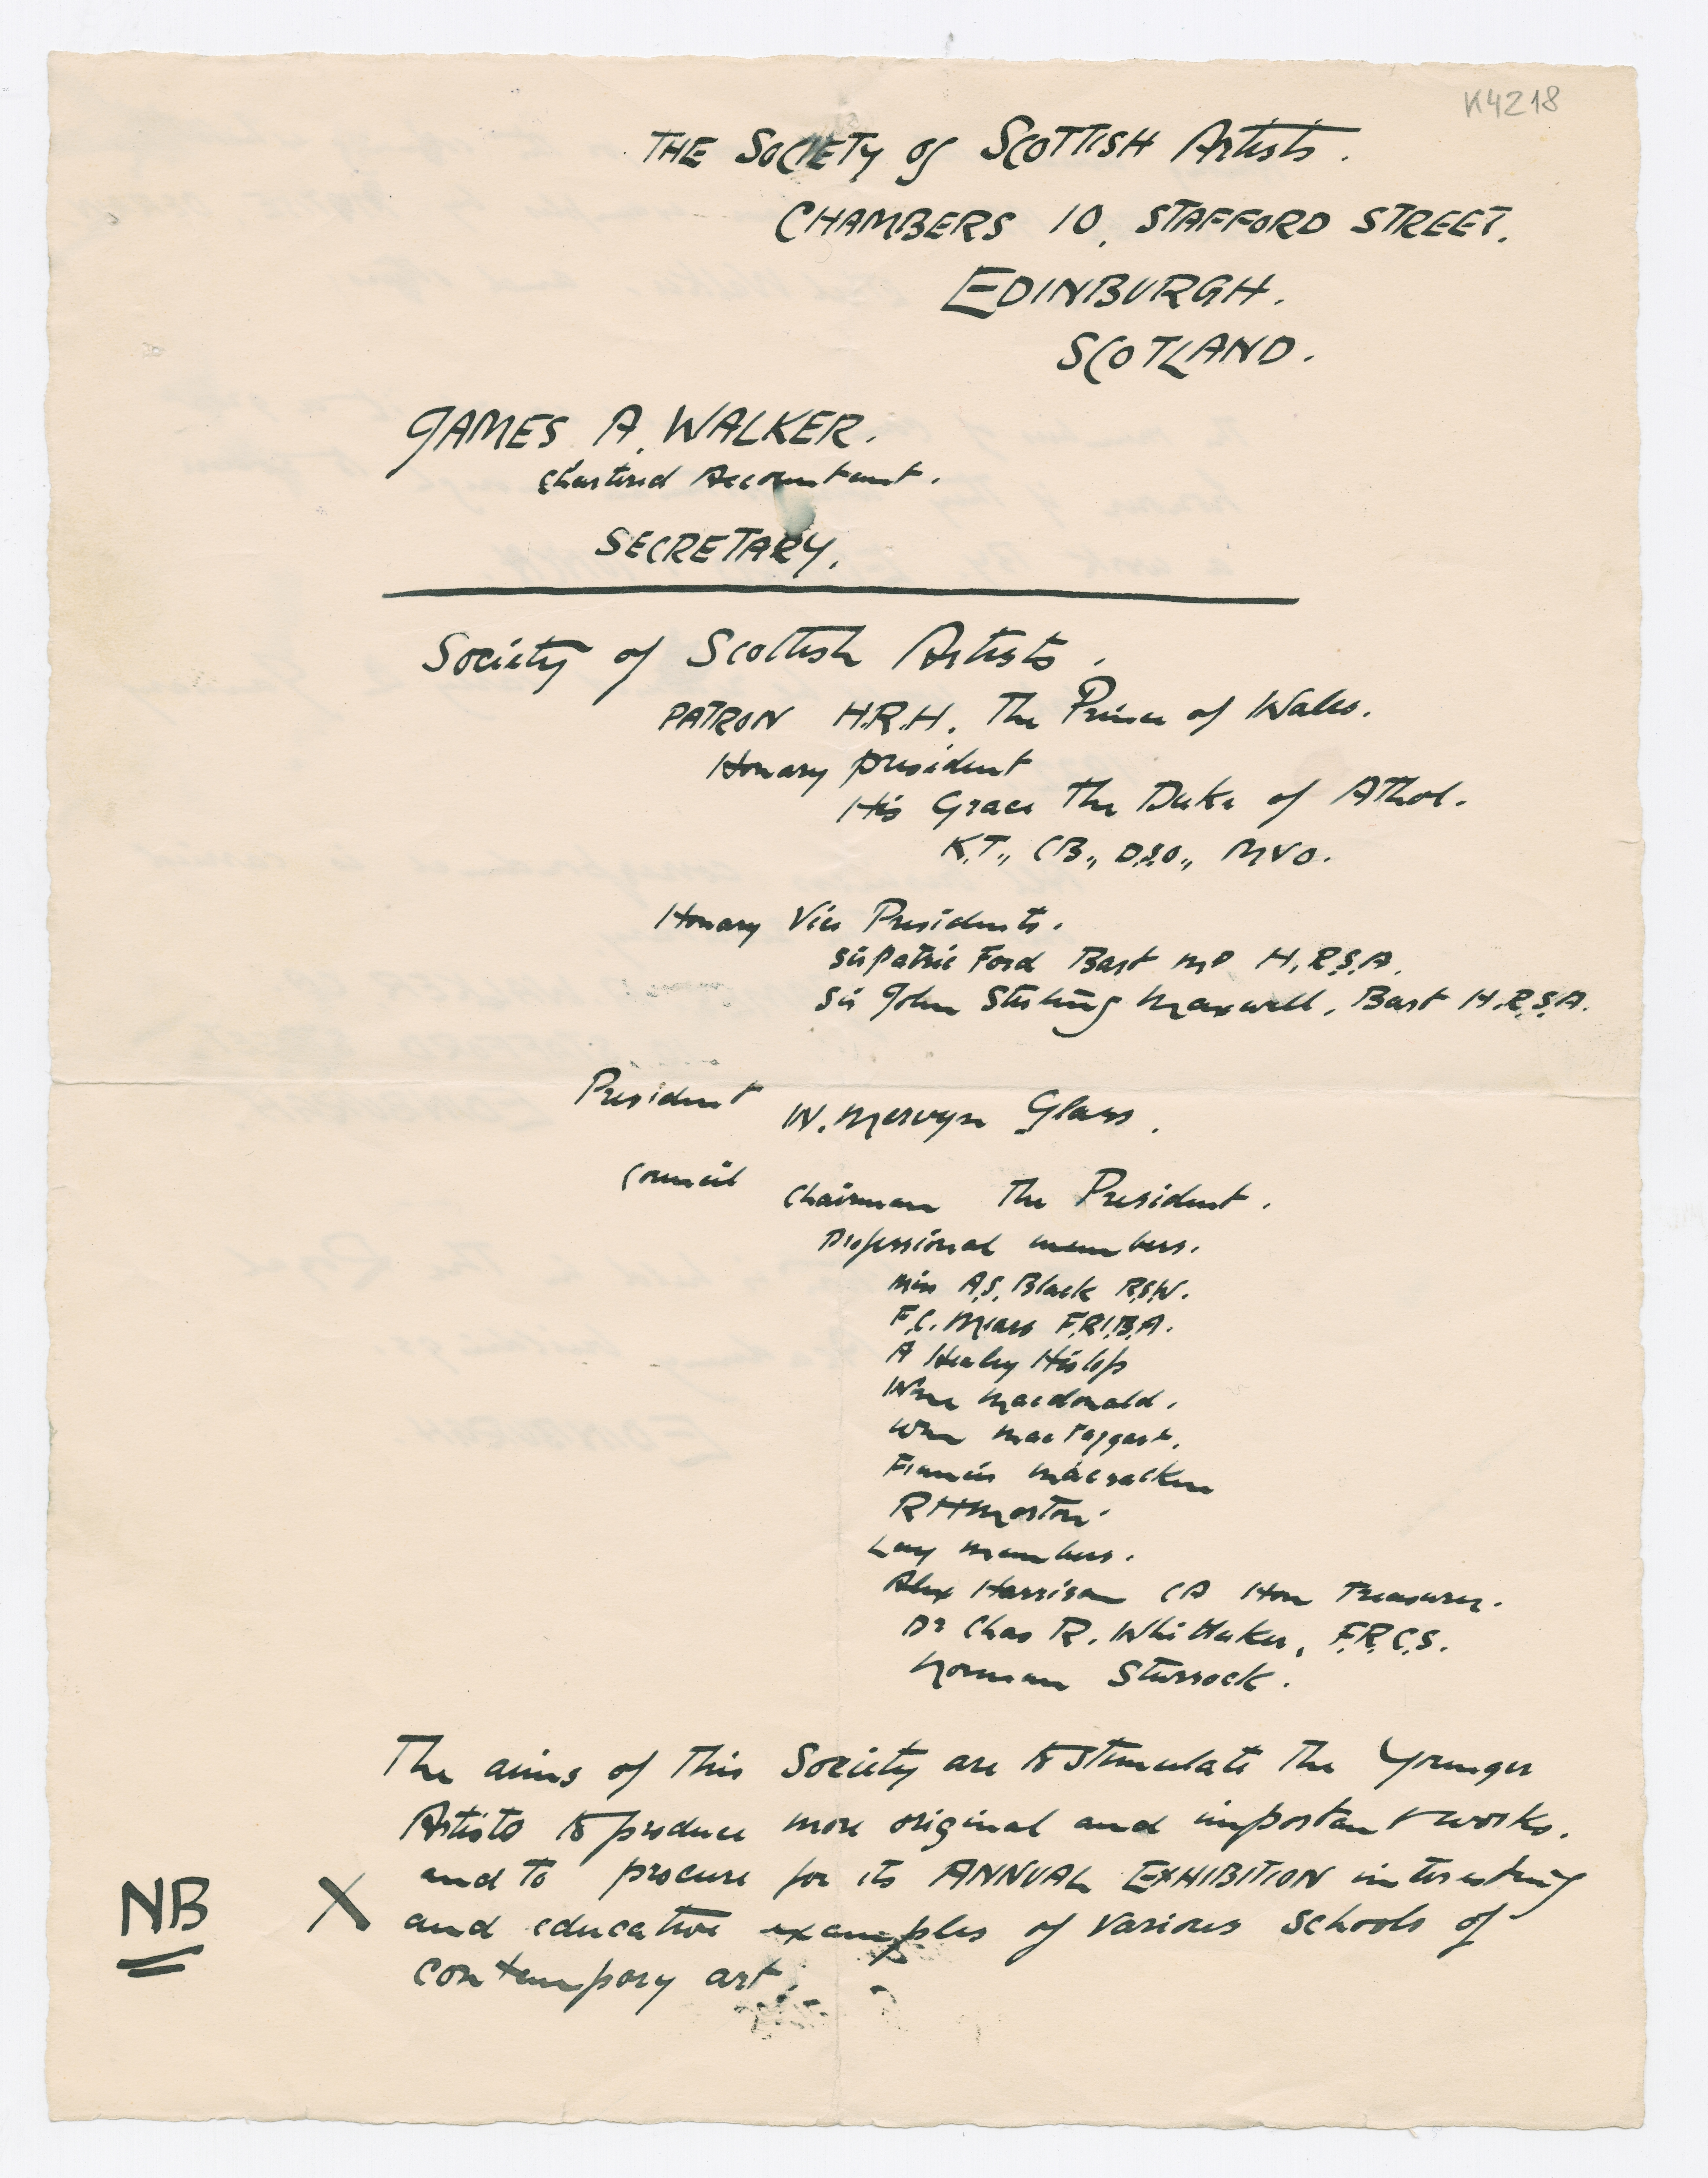 K4218
THE SOCIETY of SCOTTISH Artists.
CHAMBERS 10, STAFFORD STREET.
EDINBURGH.
SCOTLAND.
JAMES A. WALKER.
Chartered Accountant.
SECRETARY.
Society of Scottish Artists.
PATRON H.R.H. The Prince of Wales.
Honary president
His Grace The Duke of Athol.
K.T., C.B., D.S.O., MVO.
Honary Vice Presidents.
Sir Patric Ford Bart MP H.R.S.A.
Sir John Stirling Maxwell, Bart H.R.S.A.
President W. Mervyn Glass.
Council Chairman The President.
Professional members.
Miss A.S. Black R.S.W.
F.C. Mears F.R.I.B.A.
A Henley Hislop
Wm Macdonald.
Wm MacTaggart.
Francis Macracken
R H Morton.
Lay members.
Alex Harrison CA Hon Treasurer.
Dr Chas R. Whittaker, F.R.C.S.
Norman Sturrock.
The aims of This Society are to stimulate The Younger
Artists to produce more original and important works.
and to procure for its ANNUAL EXHIBITION interesting
NB X and educative examples of various schools of
contempory art.